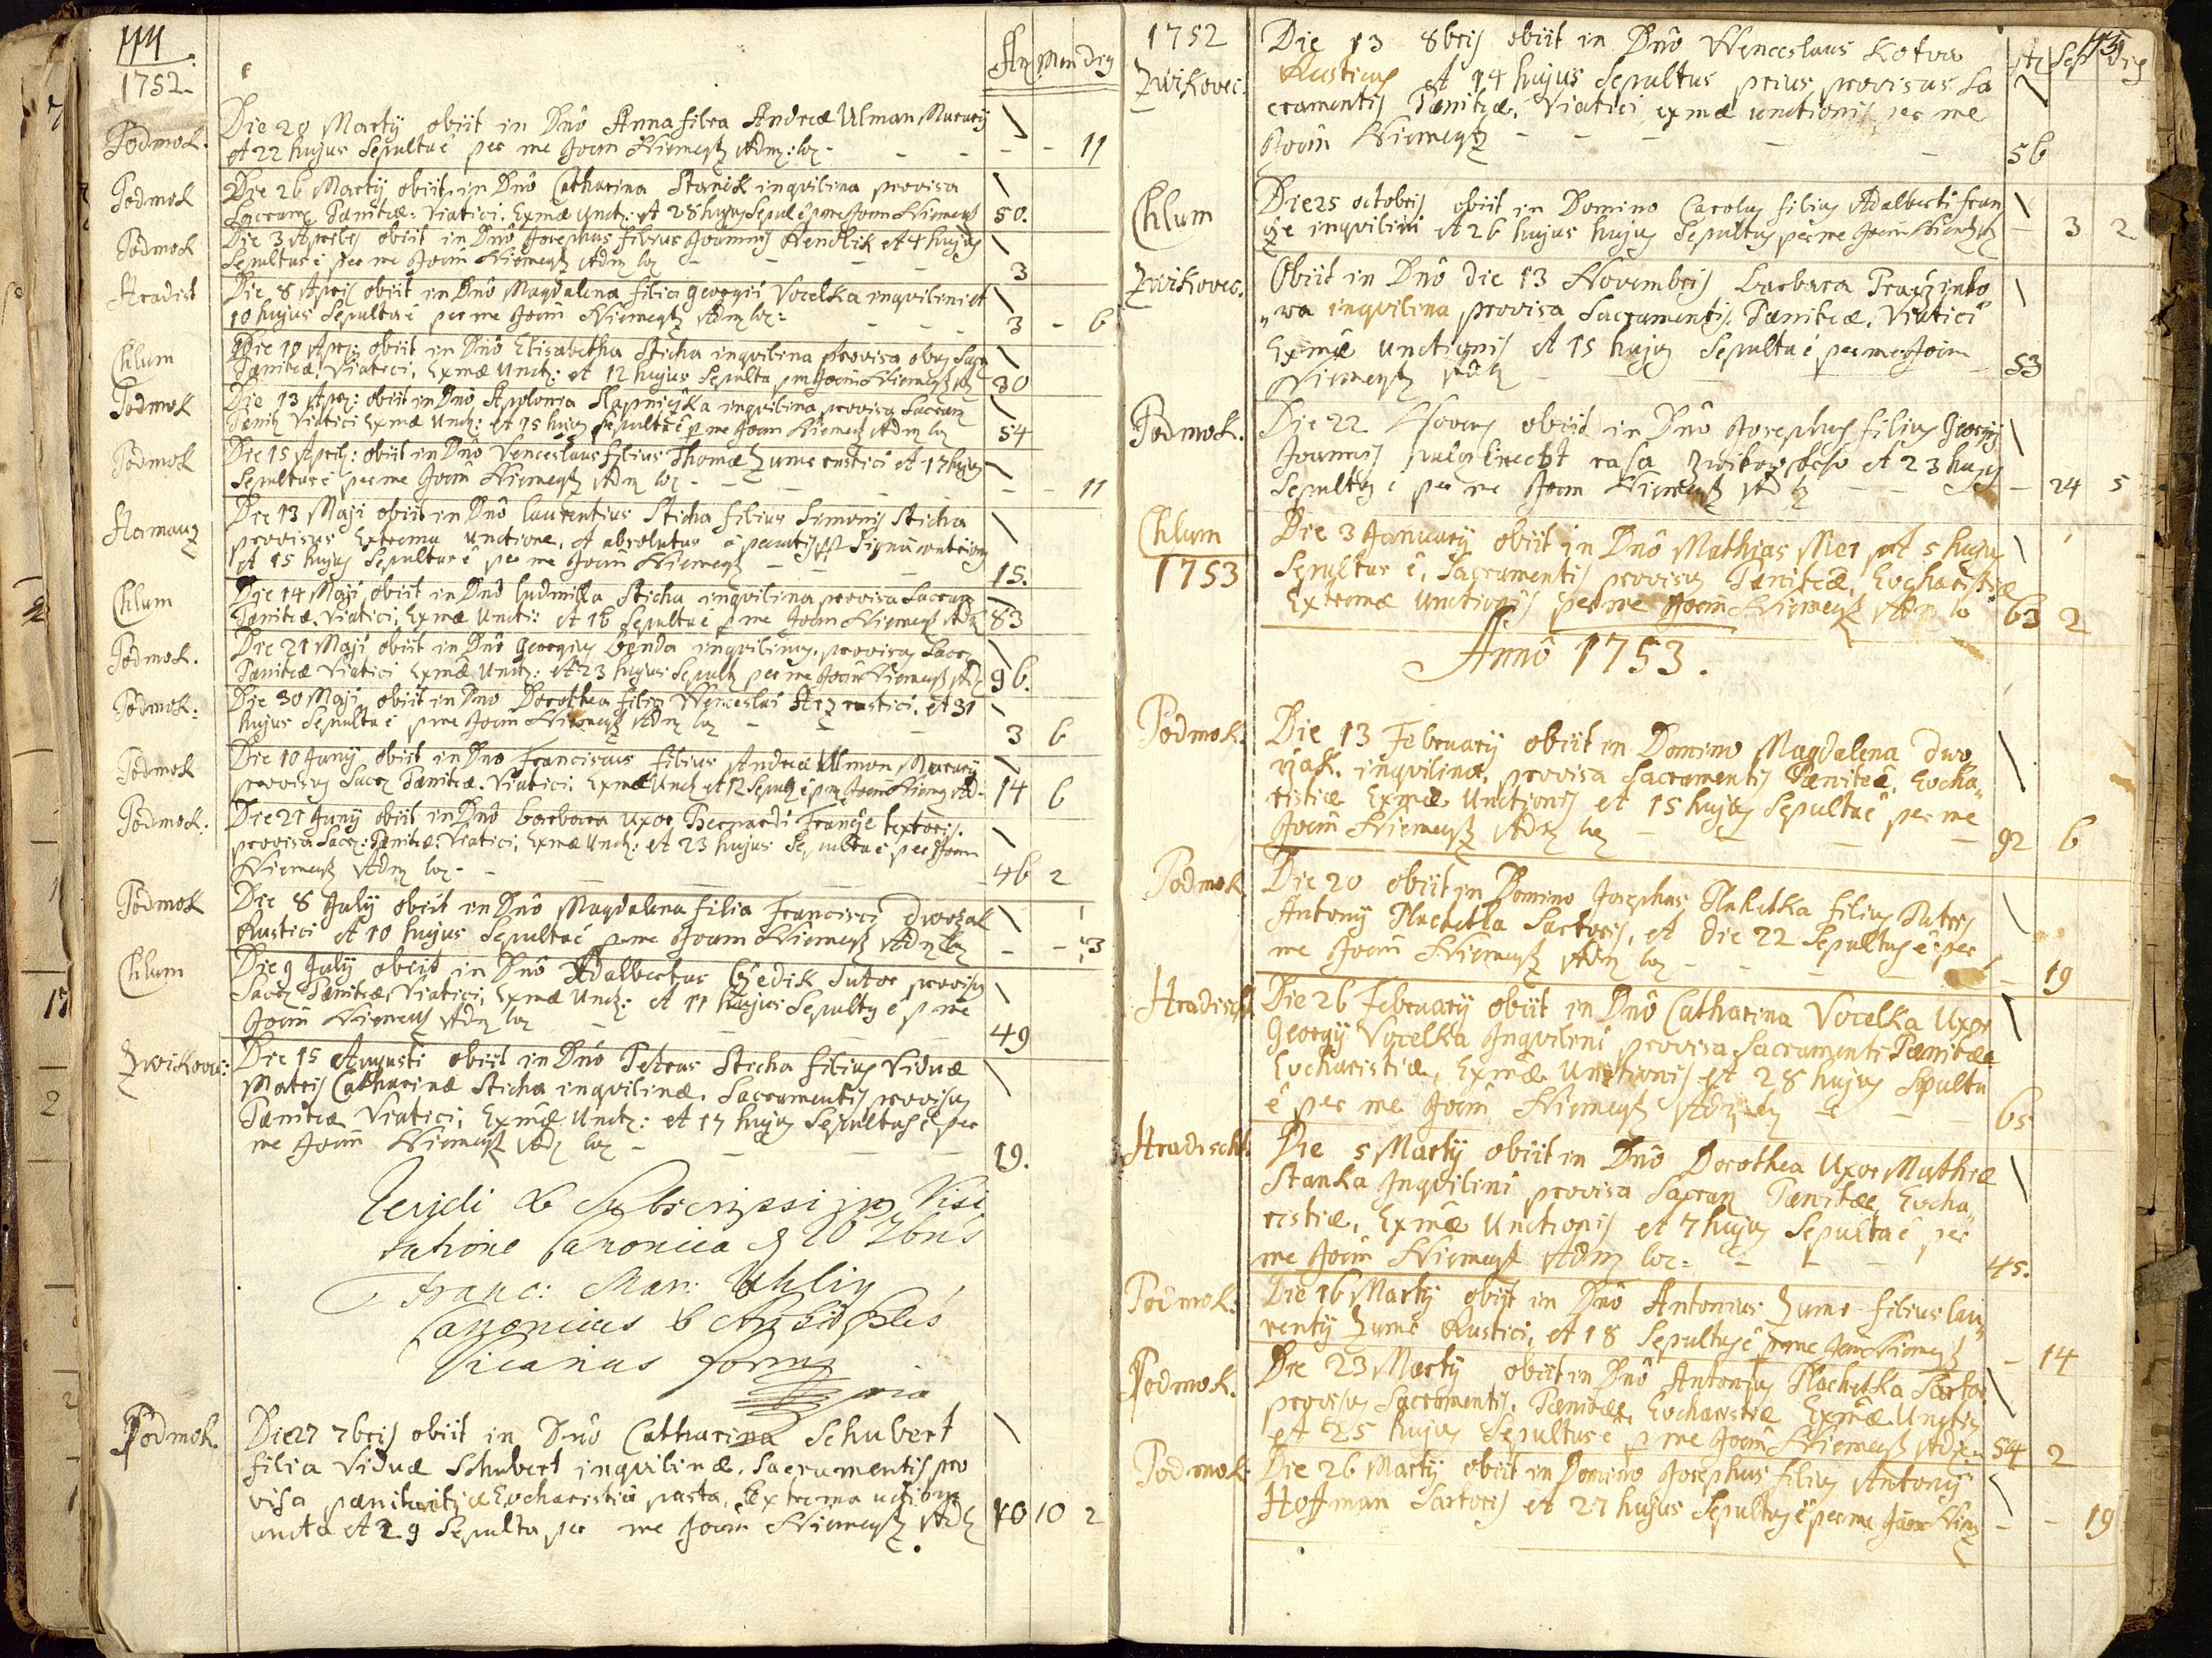 114
1752
An Men Dies
Podmok. Die 20 Martÿ obiit in Dnô Anna filia Andreæ Ulman Murarÿ
et 22 hujus Sepulta ê per me Joan̄ Niemeyß Adm: loc - - - - 11
Podmok Die 26 Martÿ obiit in Dnô Catharina Stanik inqvilina provisa
Sacram̄ Pænitæ: Viatici, Exmæ Unct: et 28 hujus Sepul ê p me Joan Niemeyß 50.
Podmok Die 3 Aprilis obiit in Dnô Josephus filius Joannis Hendlik et 4 hujus
Sepultus ê per me Joan̄ Niemeyß Adm loc - - - 3
Hradist Die 8 Apris obiit in Dnô Magdalena filia Georgii Vocelka inqvilini et
10 hujus Sepulta ê per me Joan Niemeyß Adm loc: - - - 3 - 6
Chlum Die 10 Apr: obiit in Dnô Elisabetha Sticha inqvilina provisa
Pænitæ. Viatici, Exmæ Unct: et 12 hujus Sepulta pm Joan̄ Niemeyß 30
Podmok Die 13 Apr: obiit in Dnô Apolonia Slapniczka inqvilina provisa Sacram
Pænit Viatici Exmæ Unct: et 15 hujus Sepulta ê p me Joan Niemeyß Adm loc 54
Podmok Die 15 April: obiit in Dnô Venceslaus filius Thomæ Zume rustici et 17 hujus
Sepultus ê per me Joan̄ Niemeyß Adm loc - - - - 11
Hamauz Die 13 Maji obiit in Dnô Laurentius Sticha filius Simonis Sticha
provisus Extrema Unctione, et absolutus a peccatis
et 15 hujus Sepultus ê per me Joan̄ Niemeyß - - - 15.
Chlum Die 14 Maji obiit in Dnô Ludmilla Sticha inqvilina provisa Sacram
Pænitæ. Viatici, Exmæ Uncti: et 16 Sepulta ê p me Joan Niemeyß Adm 83
Podmok. Die 21 Maji obiit in Dnô Georgius Benda inqvilinus, provisus Sacr
Pænitæ Viatici Exmæ Unct: et 23 hujus Sepult per me Joan̄ Niemeyß 96.
Podmok: Die 30 Maji obiit in Dnô Dorothea filia Wenceslai rustici, et 31
hujus Sepulta ê p me Joan Niemeyß Adm loc - - - 3 6
Podmok Die 10 Junÿ obiit in Dnô Franciscus filius Andreæ Ulman Murarÿ
provisus Sacr Pænitæ. Viatici, Exmæ Unct et 12 Sepult ê p m Joan̄ Niemeyß 14 6
Podmok: Die 21 Junÿ obiit in Dnô Barbara Uxor Bernardi Francze textoris.
provisa Sacr: Pænitæ. Viatici, Exmæ Unct: et 23 hujus Sepulta ê per Joan
Niemeyß Adm loc - - - - 46 2
Podmok Die 8 Julÿ obiit in Dnô Magdalena filia Francisci Dworzak
Rustici et 10 hujus Sepulta ê p me Joan Niemeyß Adm loc - - 3
Chlum Die 9 Julÿ obiit in Dnô Adalbertus Czedik Sutor provisus
Sacr Pænitæ, Viatici, Exmæ Unct: et 11 hujus Sepultus ê p me
Joan̄ Niemeyß Adm loc - - - 49
Zwikovec: Die 15 Augusti obiit in Dnô Petrus Sticha filius Viduæ
Matris Catharinæ Sticha inqvilinæ, Sacramentis provisus
Pænitæ Viatici, Exmæ Unct: et 17 hujus Sepultus ê per
me Joan̄ Niemeyß Adm loc - - - - 19.
Revidi & Subscripsi in Visi
tatione Canonica d 20 7bris
Franc: Mar: Uhlirz
Canonicus &
Vicarius foran
mia
Podmok. Die 27 7bris obiit in Dnô Catharina Schubert
filia Viduæ Schubert inqvilinæ, Sacramentis pro
visa pænitentiæ Eucharistia pasta, Extrema uctione
uncta et 29 Sepulta per me Joan̄ Niemeyß Adm 40 10 2
1752
Zwikovec. Die 13 8bris obiit in Dnô Wenceslaus Kotva
Rusticus et 14 hujus Sepultus prius provisus Sa
cramentis Pænitæ. Viatici, exmæ unctionis per me
Joan̄ Niemeyß - - - - - 56
Chlum Die 25 octobris obiit in Domino Carolus filius Adalberti Fran
cze inqvilini et 26 hujus hujus Sepultus per me Joan Niemeyß - 3 2
Zwikovec. Obiit in Dnô die 13 Novembris Barbara
wa inqvilina provisa Sacramentis. Pænitæ. Viatici
Exmæ Unctionis et 15 hujus Sepulta ê per me Joan̄
Niemeyß Adm - - - 53
Podmok. Die 22 Novem obiit in Dnô Josephus filius Georgÿ
Joannis et 23 hujus
Sepultus ê per me Joan̄ Niemeyß Adm - - - 24 5
Chlum Die 3 Januarÿ obiit in Dnô Mathias et 5 hujus
1753 Sepultus ê, Sacramentis provisus Pænitæ, Eucharistiæ
Extremæ Unctionis per me Joan̄ Niemeyß Adm lo 63 2
Annô 1753.
Podmok. Die 13 Februarÿ obiit in Domino Magdalena Dwo
rzak. inqvilina, provisa Sacramentis Pænitæ, Eucha
ristiæ Exmæ Unctionis et 15 hujus Sepulta ê per me
Joan̄ Niemeyß Adm loc - - - 92 6
Podmok Die 20 obiit in Domino Josephus Plachetka filius Patris
Antonÿ Plachetka Sartoris, et die 22 Sepultus ê per
me Joan̄ Niemeyß Adm loc - - - - 19
Hradischt Die 26 Februarÿ obiit in Dnô Catharina Vocelka Uxor
Georgÿ Vocelka Inqvilini provisa Sacramenti Pænitæ
Eucharistiæ, Exmæ Unctionis et 28 hujus Spulta
ê per me Joan̄ Niemeyß Adm loc - - - 65
Hradischt. Die 5 Martÿ obiit in Dnô Dorothea Uxor Mathiæ
Stanka Inqvilini provisa Sacram Pænitæ, Eucha
ristiæ, Exmæ Unctionis et 7 hujus Sepulta ê per
me Joan̄ Niemeyß Adm loc: - - - 45.
Podmok: Die 16 Martÿ obiit in Dnô Antonius Zume filius Lau
rentÿ Zume Rustici, et 18 Sepultus ê p me Joan Niemeyß - 14
Podmok. Die 23 Martÿ obiit in Dnô Antonius Plachetka Sartor
provisus Sacramentis. Pænitæ, Eucharistiæ Exmæ Unctis
et 25 hujus Sepultus ê p me Joan̄ Niemeyß Adm 54 2
Podmok. Die 26 Martÿ obiit in Domino Josephus filius Antonÿ
Hoffman Sartoris et 27 hujus Sepultus ê per me Joan - - 19